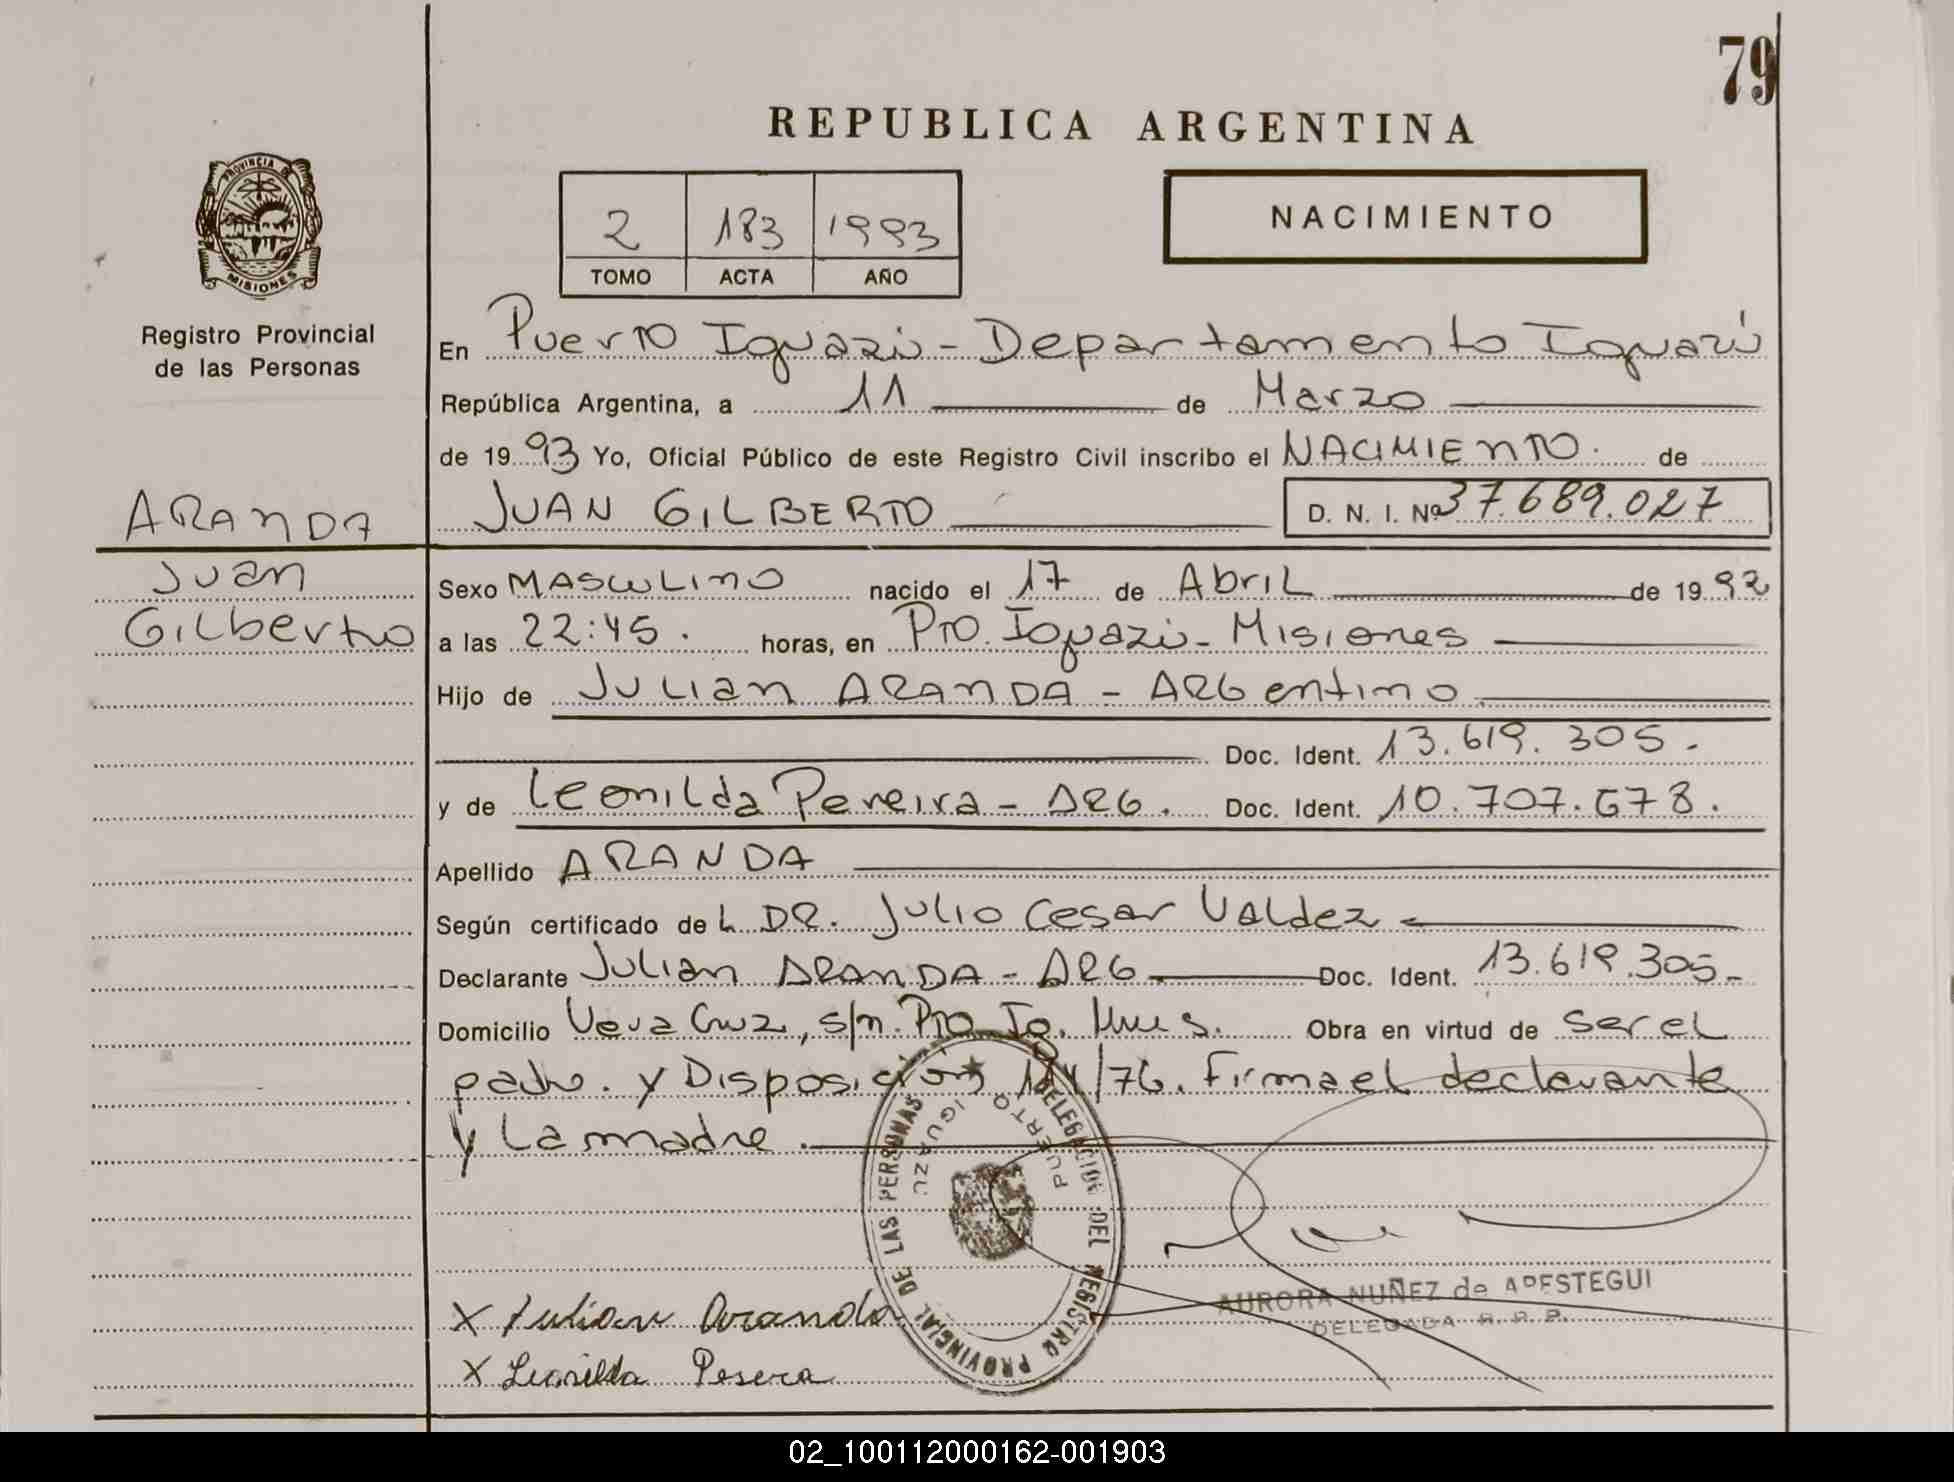 79
REPUBLICA ARGENTINA
PROVINCIA DE
MISIONES
Registro Provincial
de las Personas
2 183 1993
TOMO ACTA AÑO
NACIMIENTO
En Puerto Iguazú - Departamento Iguazú
República Argentina, a 11 de Marzo
de 1993 Yo, Oficial Público de este Registro Civil inscribo el NACIMIENTO. de
ARANDA
JUAN GILBERTO D. N. I. Nº 37.689.027
Juan
Gilberto
Sexo MASCULINO nacido el 17 de Abril de 1992
a las 22:45. horas, en Pto. Iguazú - Misiones
Hijo de Julian ARANDA - ARGentino
Doc. Ident. 13.619.305.
y de Leonilda Pereira - ARG. Doc. Ident. 10.707.678.
Apellido ARANDA
Según certificado de L DR. Julio Cesar Valdez
Declarante Julian ARANDA - ARG Doc. Ident. 13.619.305.
Domicilio Vera Cruz, s/n. Pto Ig. Mnes. Obra en virtud de ser el
padre. y Disposición /76. Firma el declarante
y La madre.
DELEGACION DEL REGISTRO PROVINCIAL DE LAS PERSONAS
PUERTO IGUAZU
AURORA NUÑEZ de APESTEGUI
DELEGADA R. P. P.
X Julian Aranda
X Leonilda Perera
02_100112000162-001903